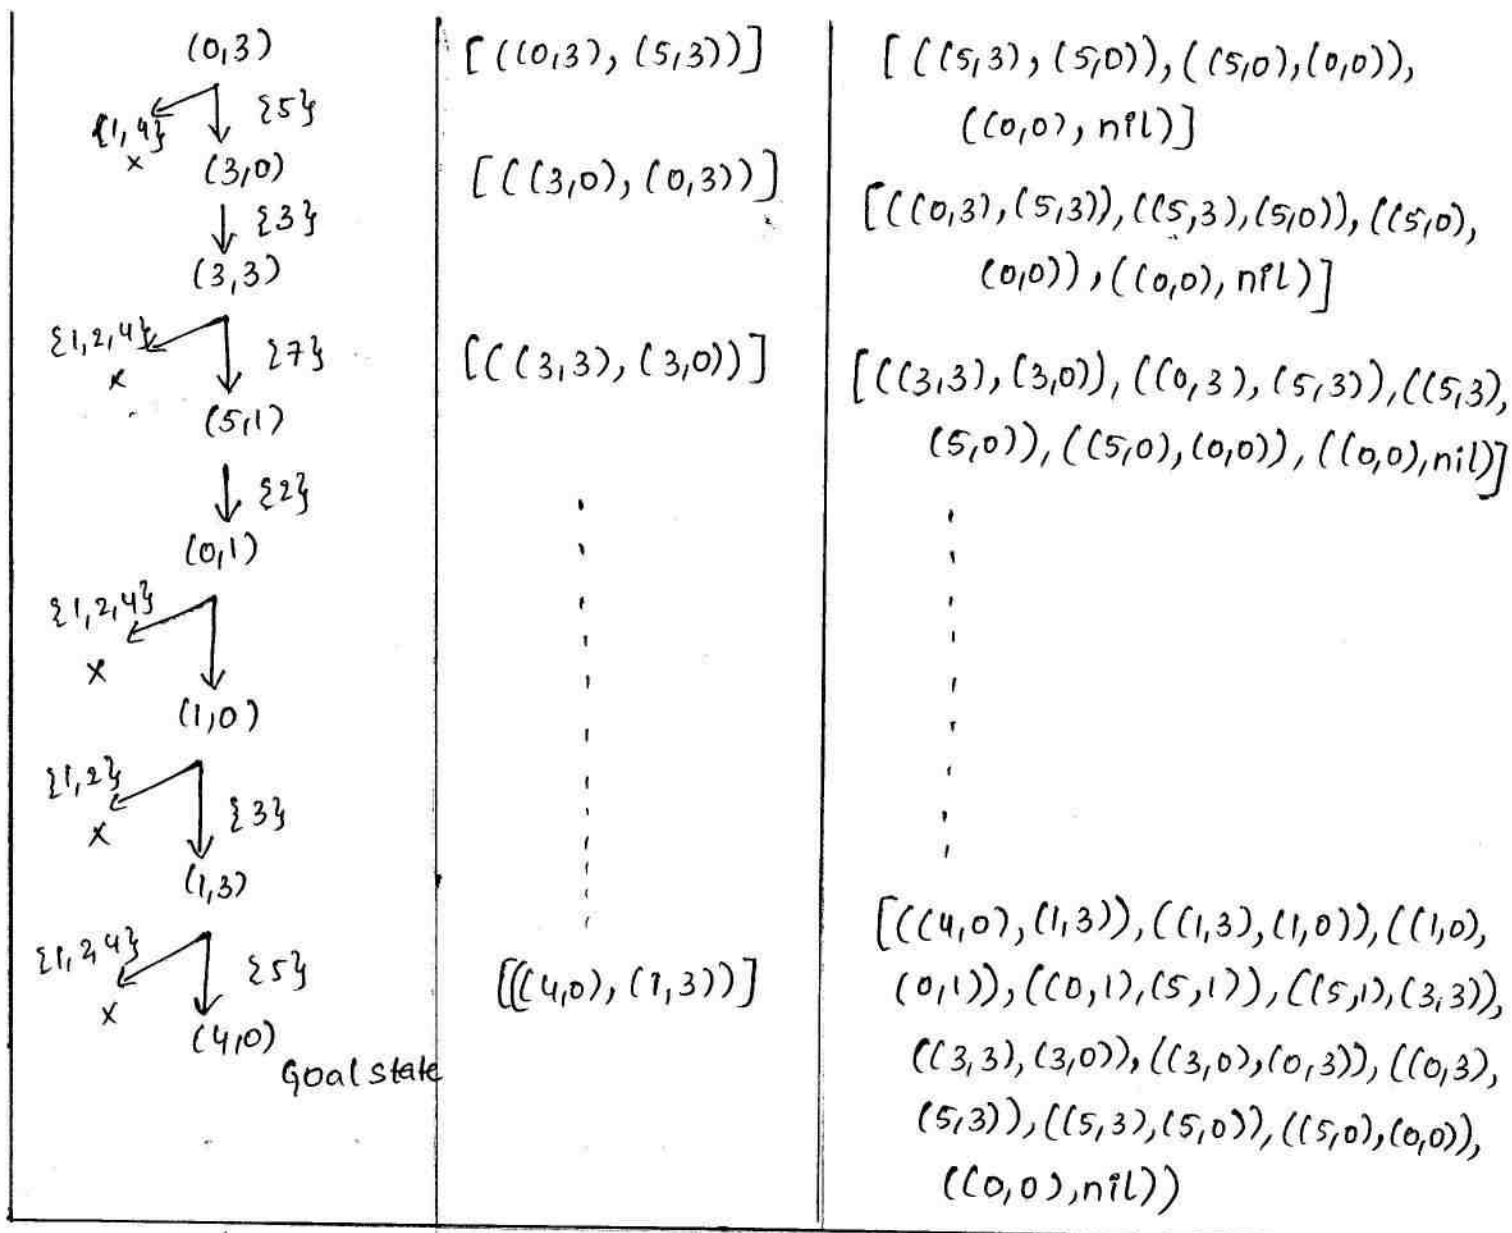 (0,3)
{1,4}
x
{5}
(3,0)
{3}
(3,3)
{1,2,4}
x
{7}
(5,1)
{2}
(0,1)
{1,2,4}
x
(1,0)
{1,2}
x
{3}
(1,3)
{1,2,4}
x
{5}
(4,0)
Goal state
[((0,3), (5,3))]
[((3,0), (0,3))]
[((3,3), (3,0))]
[((4,0), (1,3))]
[((5,3), (5,0)), ((5,0), (0,0)),
((0,0), nil)]
[((0,3), (5,3)), ((5,3), (5,0)), ((5,0),
(0,0)), ((0,0), nil)]
[((3,3), (3,0)), ((0,3), (5,3)), ((5,3),
(5,0)), ((5,0), (0,0)), ((0,0), nil)]
[((4,0), (1,3)), ((1,3), (1,0)), ((1,0),
(0,1)), ((0,1), (5,1)), ((5,1), (3,3)),
((3,3), (3,0)), ((3,0), (0,3)), ((0,3),
(5,3)), ((5,3), (5,0)), ((5,0), (0,0)),
((0,0), nil))